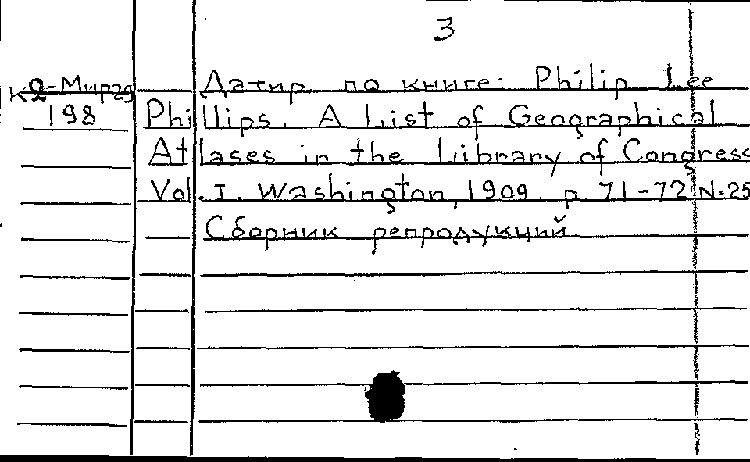 3
К 2-Мира
198
Датир. по книге: Philip Lee
Phillips. A List of Geographical
Atlases in the Library of Congress
Vol. I. Washington, 1909. p. 71-72 N. 25
Сборник репродукций